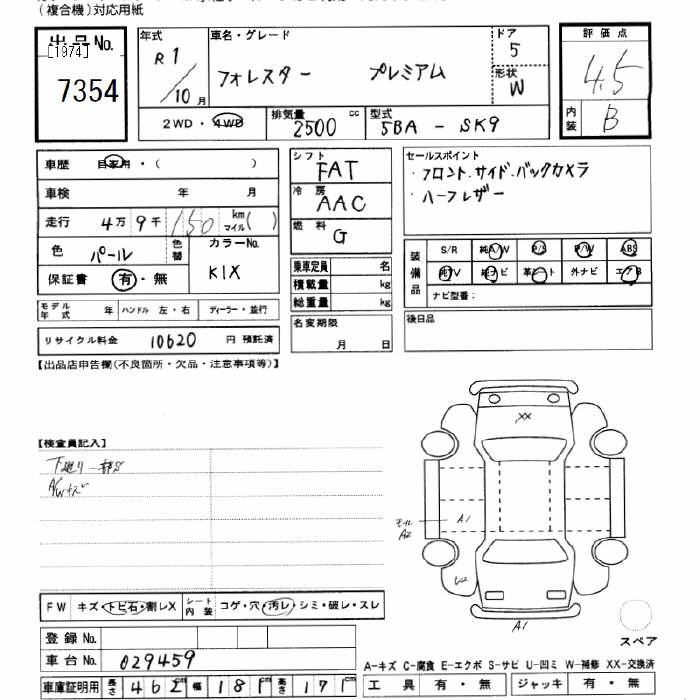 (複合機)対応用紙
出品No.
[1974]
7354
年式
R1/10月
車名・グレード
フォレスター プレミアム
ドア
5
形状
W
2WD・4WD
排気量
2500 cc
型式
5BA - SK9
評価点
4.5
内装
B
車歴 自家用・( )
車検 年 月
走行 4万9千150 km マイル( )
色 パール 色替
カラーNo.
K1X
保証書 有・無
モデル年式 年 ハンドル 左・右 ディーラー・並行
リサイクル料金 10620 円 預託済
シフト
FAT
冷房
AAC
燃料
G
乗車定員 名
積載量 kg
総重量 kg
名変期限
月 日
セールスポイント
・フロント.サイド.バックカメラ
・ハーフレザー
装備品
S/R 純A/W P/S P/W ABS
純TV 純ナビ 革シート 外ナビ エアB
ナビ型番:
後日品
【出品店申告欄(不良箇所・欠品・注意事項等)】
【検査員記入】
下廻り一部サビ
A/Wキズ
XX
モール
A2
A1
U2
A1
スペア
FW キズ・トビ石・割レX シート内装 コゲ・穴・汚レ・シミ・破レ・スレ
登録No.
車台No. 029459
車庫証明用 長さ 462cm 幅 181cm 高さ 171cm
A-キズ C-腐食 E-エクボ S-サビ U-凹ミ W-補修 XX-交換済
工具 有・無 ジャッキ 有・無